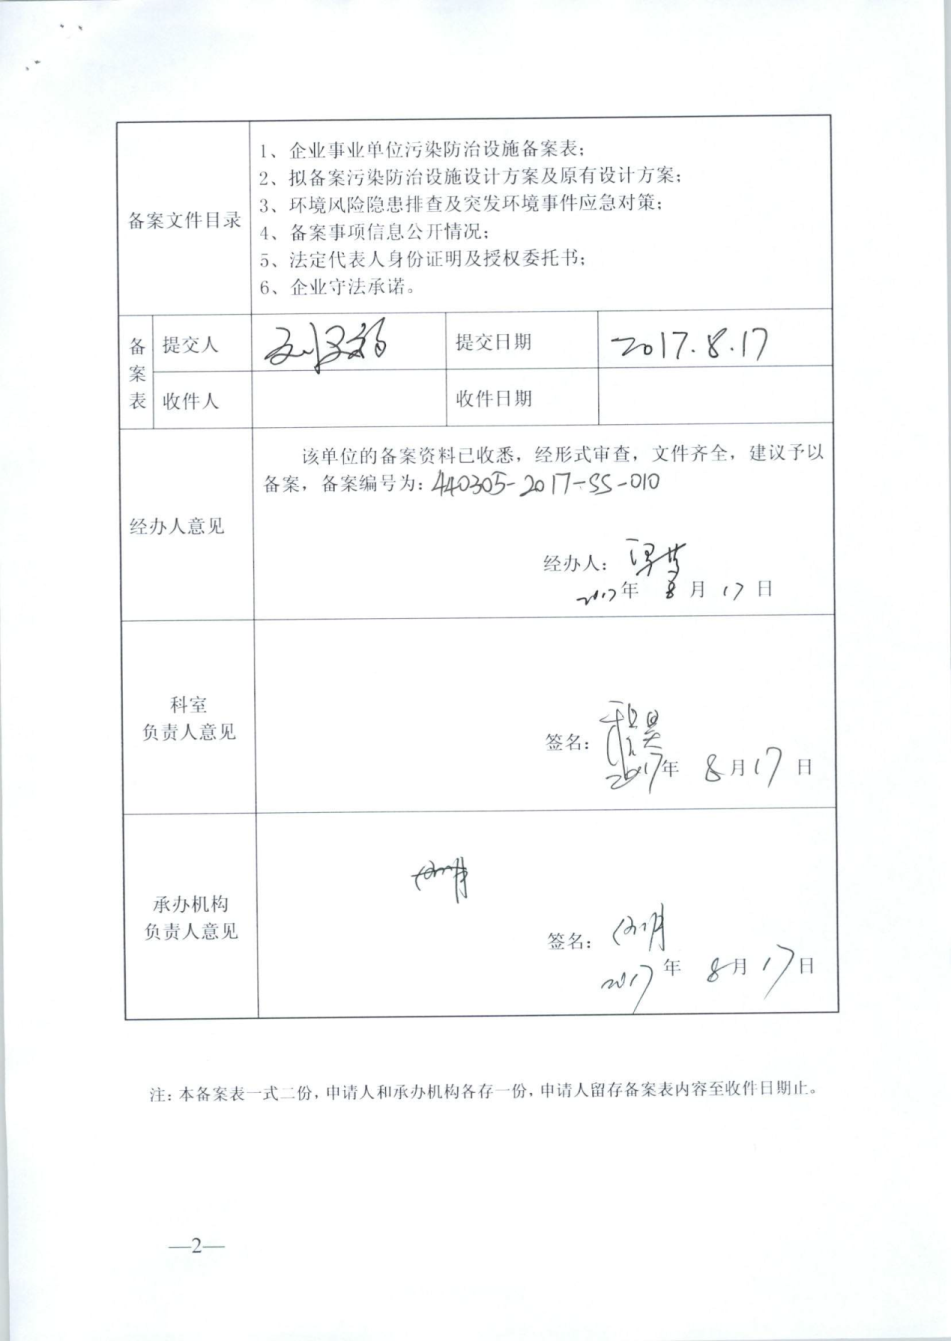 备案文件目录
1、企业事业单位污染防治设施备案表；
2、拟备案污染防治设施设计方案及原有设计方案；
3、环境风险隐患排查及突发环境事件应急对策；
4、备案事项信息公开情况；
5、法定代表人身份证明及授权委托书；
6、企业守法承诺。
备案表
提交人
提交日期 2017.8.17
收件人
收件日期
经办人意见
该单位的备案资料已收悉，经形式审查，文件齐全，建议予以
备案，备案编号为：440305-2017-SS-010
经办人：
2017年 8月 17日
科室
负责人意见
签名：
2017年 8月17日
承办机构
负责人意见
签名：
2017年 8月17日
注：本备案表一式二份，申请人和承办机构各存一份，申请人留存备案表内容至收件日期止。
—2—